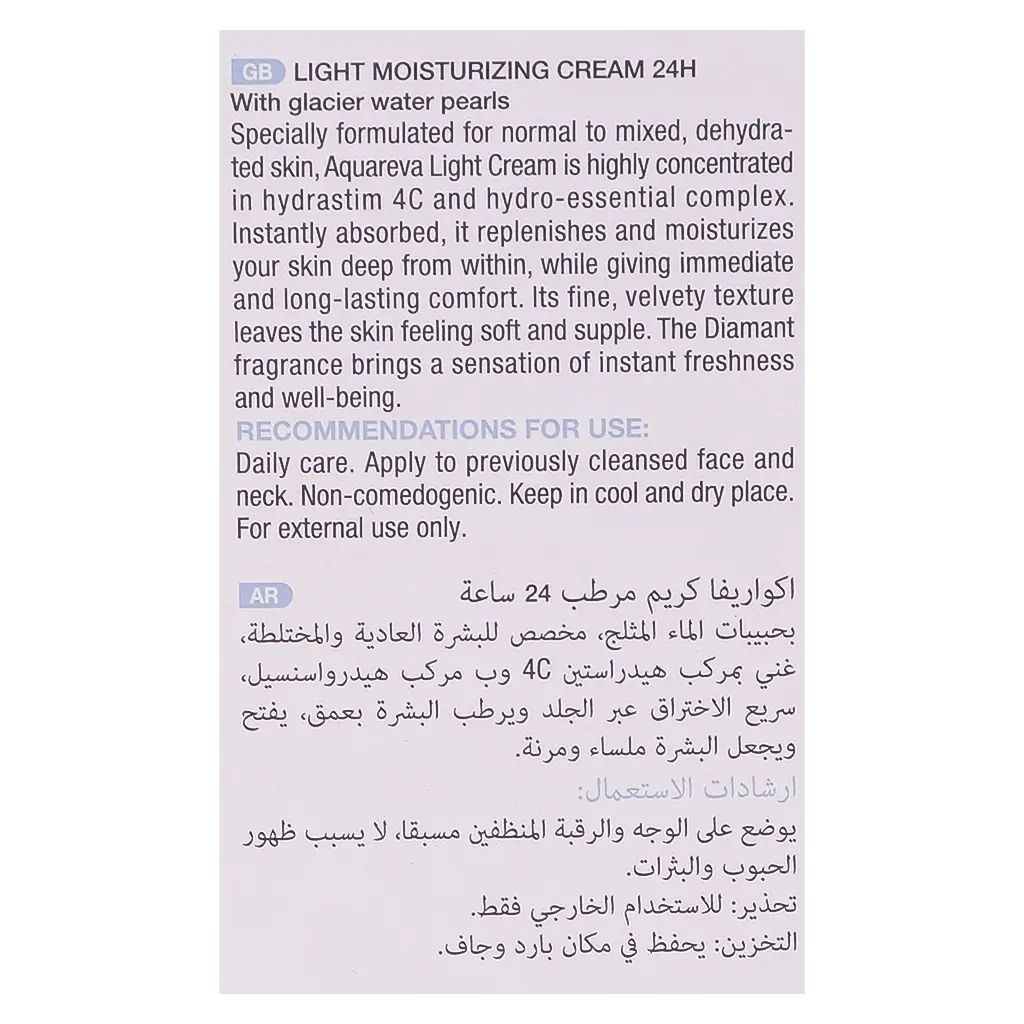 GB LIGHT MOISTURIZING CREAM 24H
With glacier water pearls
Specially formulated for normal to mixed, dehydra-
ted skin, Aquareva Light Cream is highly concentrated
in hydrastim 4C and hydro-essential complex.
Instantly absorbed, it replenishes and moisturizes
your skin deep from within, while giving immediate
and long-lasting comfort. Its fine, velvety texture
leaves the skin feeling soft and supple. The Diamant
fragrance brings a sensation of instant freshness
and well-being.
RECOMMENDATIONS FOR USE:
Daily care. Apply to previously cleansed face and
neck. Non-comedogenic. Keep in cool and dry place.
For external use only.
AR اكواريفا كريم مرطب 24 ساعة
بحبيبات الماء المثلج، مخصص للبشرة العادية والمختلطة،
غني بمركب هيدراستين 4C وب مركب هيدرواسنسيل،
سريع الاختراق عبر الجلد ويرطب البشرة بعمق، يفتح
ويجعل البشرة ملساء ومرنة.
ارشادات الاستعمال:
يوضع على الوجه والرقبة المنظفين مسبقا، لا يسبب ظهور
الحبوب والبثرات.
تحذير: للاستخدام الخارجي فقط.
التخزين: يحفظ في مكان بارد وجاف.